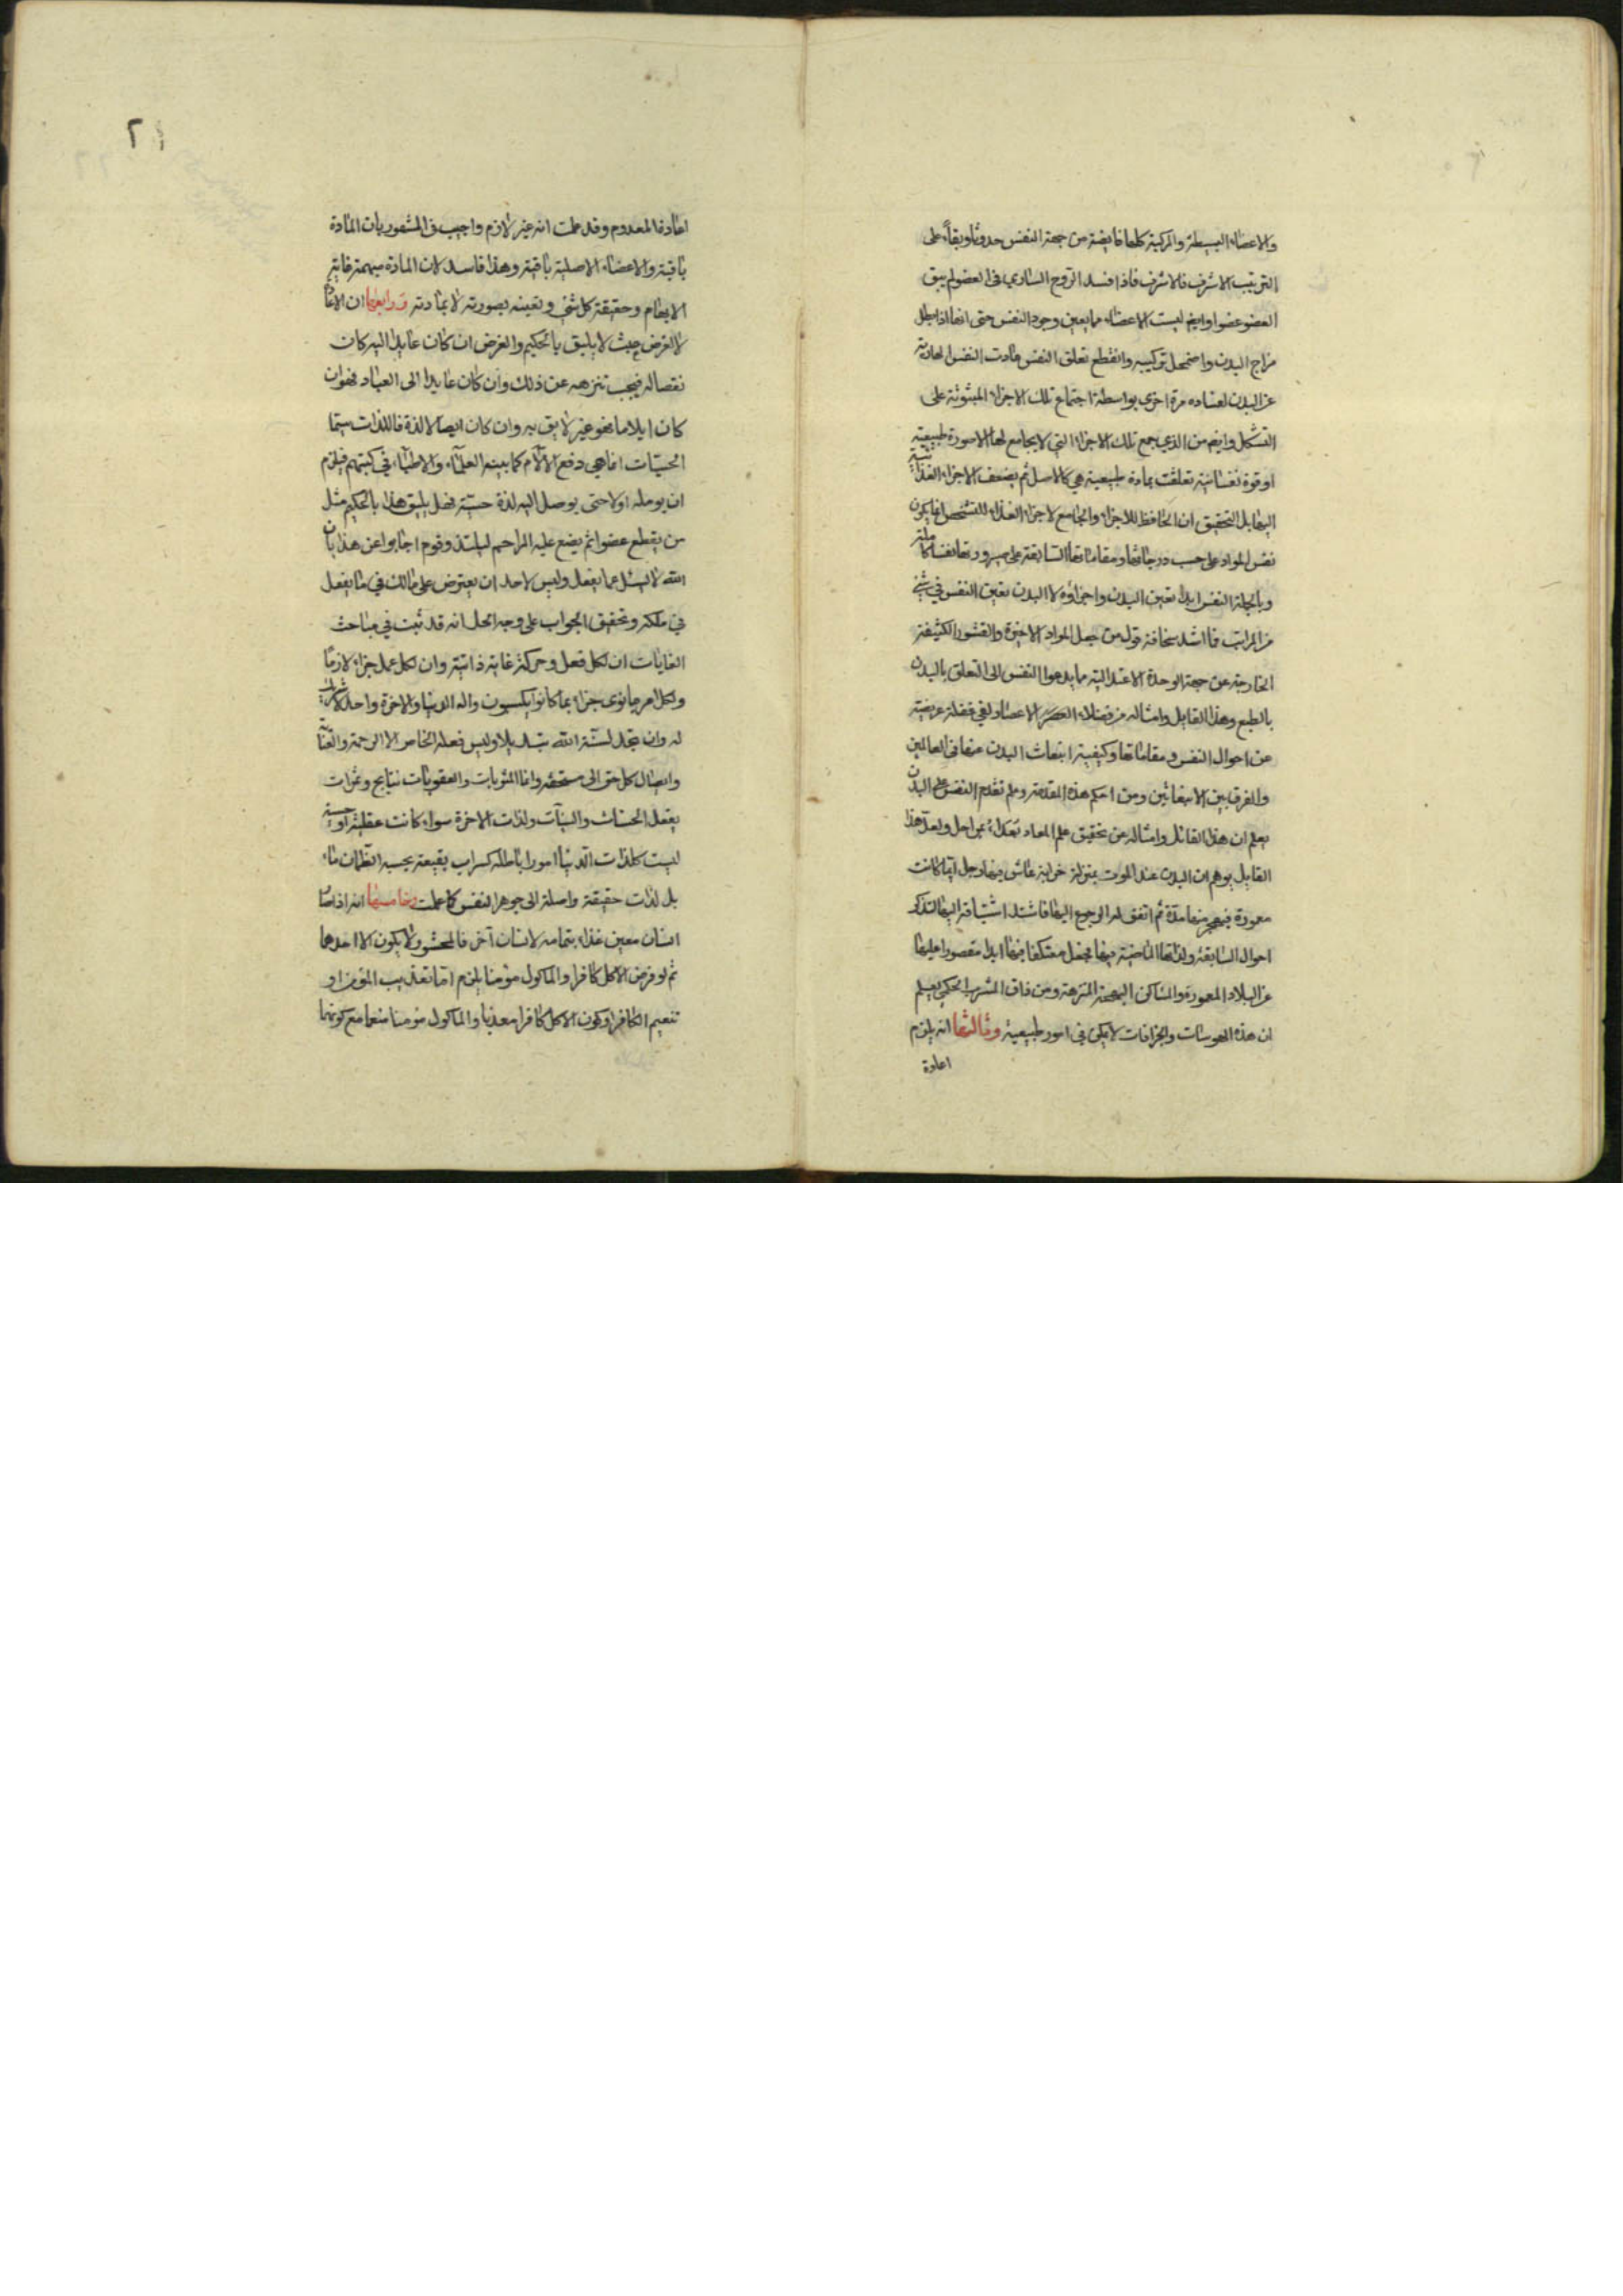 والاعضاء البسيطة والمركبة كلها فايضة من جهة النفس حدوثا وبقاء على
الترتيب الاشرف فالاشرف فاذا فسد الروح الساري في العضو لم يبق
العضو عضوا وايضا ليست الاعضاء مما يعين وجود النفس حتى انها اذا بطل
مزاج البدن واضمحل تركيبه وانقطع تعلق النفس عادت النفس
عن البدن لفساده مرة اخرى بواسطة اجتماع تلك الاجزاء المبثوثة على
التشكل وايضا من الذي جمع تلك الاجزاء التي لا يجامع لها الا صورة طبيعية
او قوة نفسانية تعلقت بمادة طبيعية هي كالاصل ثم يضيف الاجزاء الغذائية
اليها بل التحقيق ان الحافظ للاجزاء والجامع لاجزاء الغذاء للشخص انما يكون
نفس المواد على حسب درجاتها ومقاماتها السابقة على صيرورتها نفسا كاملة
وبالجملة النفس ابدا تعين البدن واجزاؤه لا البدن يعين النفس في شئ
من المراتب فما اشد سخافة قول من جعل المواد الاخيرة والقشور الكثيفة
الخارجة عن جهة الوحدة الاعتدالية مما يدعوا النفس الى التعلق بالبدن
بالطبع وهذا القايل وامثاله من فضلاء العصر الاعصاد لفي غفلة عريضة
عن احوال النفس ومقاماتها وكيفية انبعاث البدن عنها في العالمين
والفرق بين الانبعاثين ومن احكم هذه المقدمة وعلم تقدم النفس على البدن
يعلم ان هذا القائل وامثاله عن تحقيق علم المعاد بعداء بمراحل ولعل هذا
القايل يوهم ان البدن عند الموت بمنزلة خرابة عاش فيها رجل ايما كانت
معمورة فهجر منها مدة ثم اتفق له الرجوع اليها فاشتد اشتياقه اليها لتذكر
احوال السابقة ولذاتها الماضية فيها فجعل معتكفا فيها ابدا مقصورا عليها
عن البلاد المعمورة والمساكن البهجة المنزهة ومن ذاق المشرب الحكمي يعلم
ان هذه الهوسات والجزافات لا يكون في امور طبيعية وثالثها انه يلزم
اعادة
اعادة المعدوم وقد علمت انه غير لازم واجيب في المشهور بان المادة
باقية والاعضاء الاصلية باقية وهذا فاسد لان المادة مبهمة غاية
الابهام وحقيقة كل شئ وتعينه بصورته لا بمادته ورابعها ان الاعادة
لا لغرض عبث لا يليق بالحكيم والغرض ان كان عايدا اليه كان
نقصا له فيجب تنزيهه عن ذلك وان كان عايدا الى العباد فهو ان
كان ايلاما فهو غير لايق به وان كان ايصالا لذة فاللذات سيما
الحسيات انما هي دفع الآلام كما بينه العلماء والاطباء في كتبهم فيلزم
ان يولمه اولا حتى يوصل اليه لذة حسية فهل يليق هذا بالحكيم مثل
من يقطع عضوا ثم يضع عليه المراهم ليلتذ وقوم اجابوا عن هذا بان
الله لا يسئل عما يفعل وليس لاحد ان يعترض على مالك في ما يفعل
في ملكه وتحقيق الجواب على وجه الحل انه قد ثبت في مباحث
الغايات ان لكل فعل وحركة غاية ذاتية وان لكل عمل جزاء لازما
ولكل امرء ما نوى جزاء بما كانوا يكسبون واله الدنيا والاخرة واحد لا شريك
له ولن تجد لسنة الله تبديلا وليس فعله الخاص الا الرحمة والعناية
وايصال كل حق الى مستحقه وانما المثوبات والعقوبات نتايج وثمرات
بفعل الحسنات والسيآت ولذات الاخرة سواء كانت عقلية او حسية
ليست كلذات الدنيا امورا باطلة كسراب بقيعة يحسبه الظمآن ماء
بل لذات حقيقة واصلة الى جوهر النفس كما علمت وخامسها انه اذا صار
انسان معين غذاء بتمامه لانسان آخر فالمحشور لا يكون الا احدهما
ثم لو فرض الاكل كافرا والماكول مؤمنا يلزم اما تعذيب المؤمن او
تنعيم الكافر او كون الاكل كافرا معذبا والماكول مؤمنا منعما مع كونهما